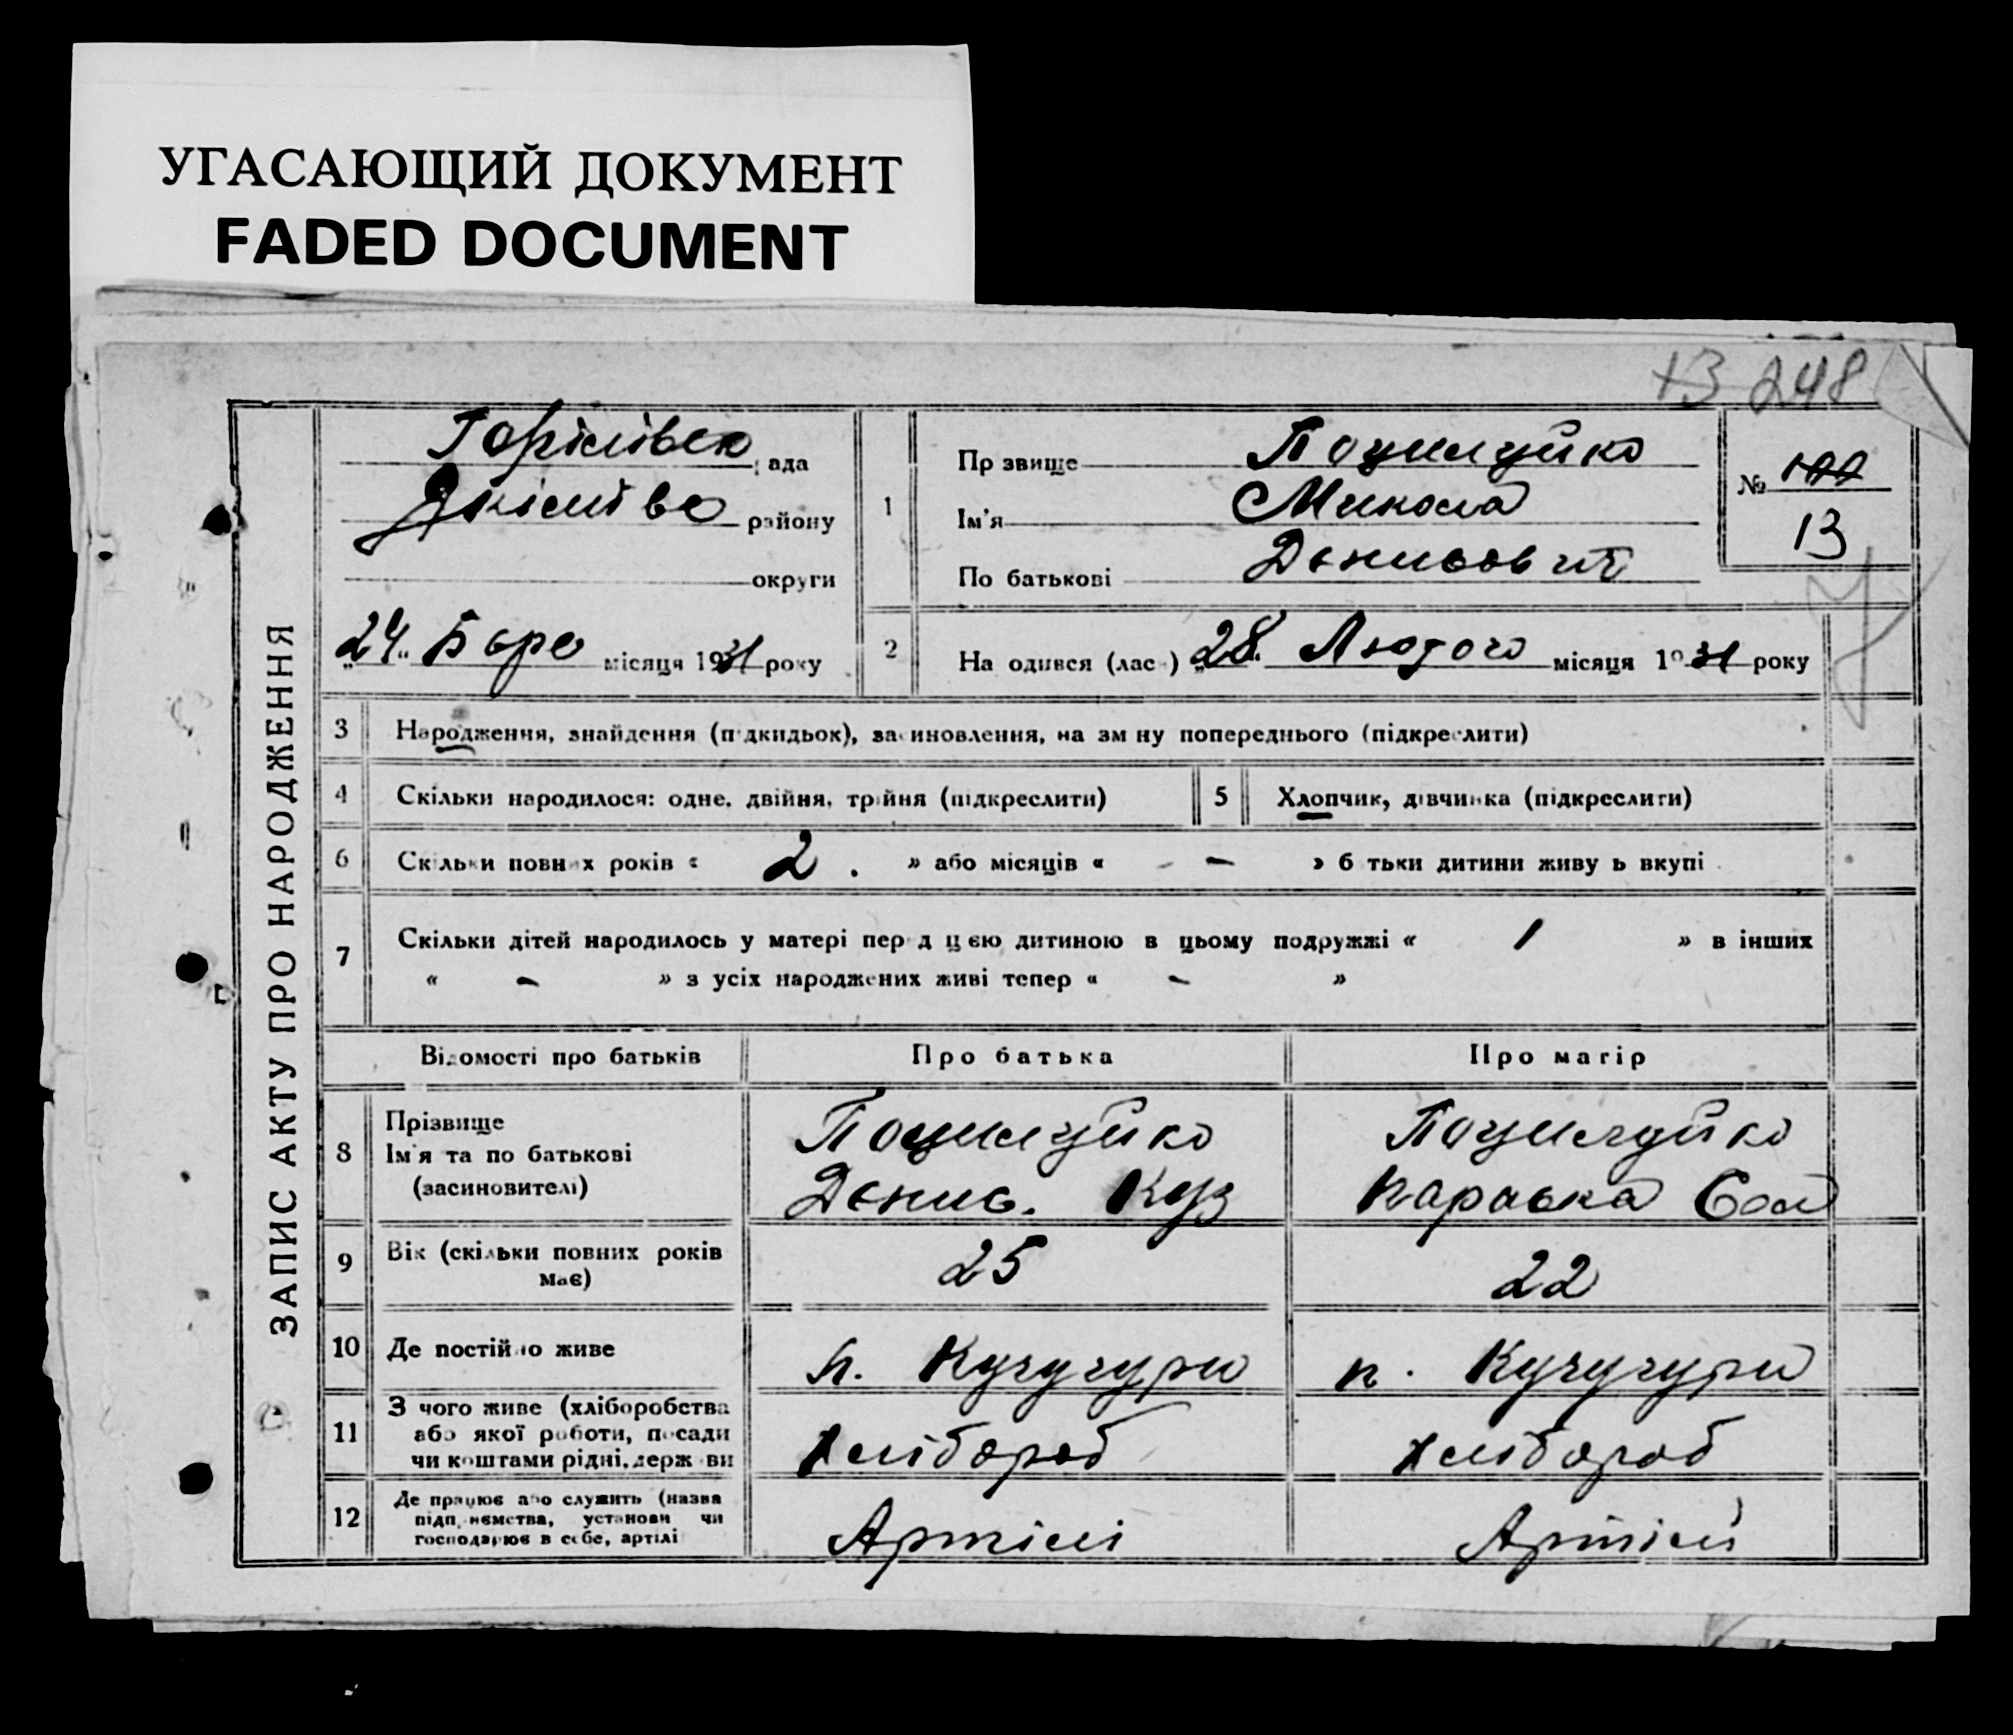 УГАСАЮЩИЙ ДОКУМЕНТ
FADED DOCUMENT
13 248
ЗАПИС АКТУ ПРО НАРОДЖЕННЯ
ада
району
округи
„24“ Бере місяця 1931 року
1
Пр звище Поцилуйко
Ім'я Микола
По батькові Денисович
№
13
2
На одився (лас ) „28“ Лютого місяця 19 31 року
3 Народження, знайдення (п дкидьок), за иновлення, на зм ну попереднього (підкреслити)
4 Скільки народилося: одне, двійня, трійня (підкреслити)
5 Хлопчик, дівчинка (підкреслити)
6 Скільки повних років « 2. » або місяців « - » б тьки дитини живу ь вкупі
7 Скільки дітей народилось у матері пер д цією дитиною в цьому подружжі « 1 » в інших
« - » з усіх народжених живі тепер « - »
Відомості про батьків Про батька Про матір
8 Прізвище
Ім'я та по батькові
(засиновителі)
Поцилуйко
Денис. Куз
Поцилуйко
Параска Сом
9 Вік (скільки повних років
має)
25 22
10 Де постійно живе п. Кучугури п. Кучугури
11 З чого живе (хліборобства
або якої роботи, посади
чи коштами рідні, держ ви
хлібороб хлібороб
12 Де працює або служить (назва
підп иємства, установи чи
господарює в себе, артілі
Артілі Артілі